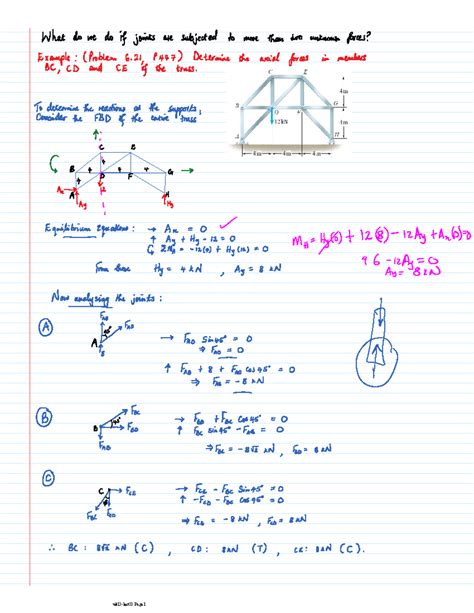 What do we do if joints are subjected to more than two unknown forces?
Example: (Problem 6.21, P447) Determine the axial forces in members
BC, CD and CE of the truss.
C E
4 m
B G
D
4 m
12 kN
A H
4 m 4 m 4 m
To determine the reactions at the supports,
Consider the FBD of the entire truss
C E
4 4
B D F G
4 4
A 12 H
Ax Ay Hy
Equilibrium equations: → Ax = 0 ✓
↑ Ay + Hy - 12 = 0
-12(4) + Hy(12) = 0
From these Hy = 4 kN , Ay = 8 kN
MH = Hy(0) + 12(8) - 12Ay + Ax(0) = 0
96 - 12Ay = 0
Ay = 8 kN
Now analysing the joints:
A
FAB
45°
FAD
A
8
→ FAD Sin45° = 0
⇒ FAD = 0
↑ FAB + 8 + FAD Cos45° = 0
⇒ FAB = -8 kN
B
FBC
45°
B FBD
FAB
→ FBD + FBC Cos45° = 0
↑ FBC Sin45° - FAB = 0
⇒ FBC = -8√2 kN , FBD = 8 kN
C
C FCE
45°
FBC FCD
→ FCE - FBC Sin45° = 0
↑ -FCD - FBC Cos45° = 0
⇒ FCE = -8 kN , FCD = 8 kN
∴ BC: 8√2 kN (C) , CD: 8kN (T) , CE: 8kN (C).